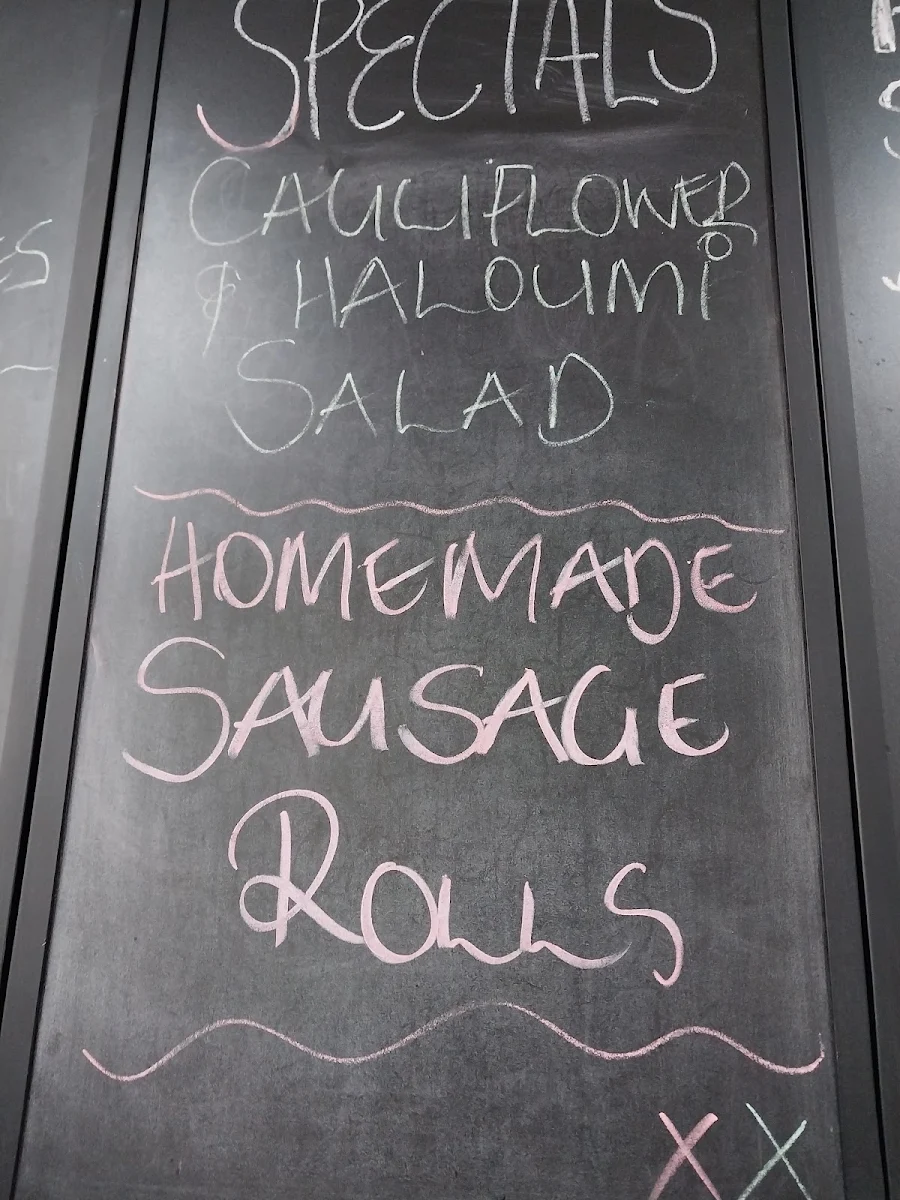 SPECIALS
CAULIFLOWER
& HALOUMi
SALAD
HOMEMADE
SAUSAGE
ROLLS
X X